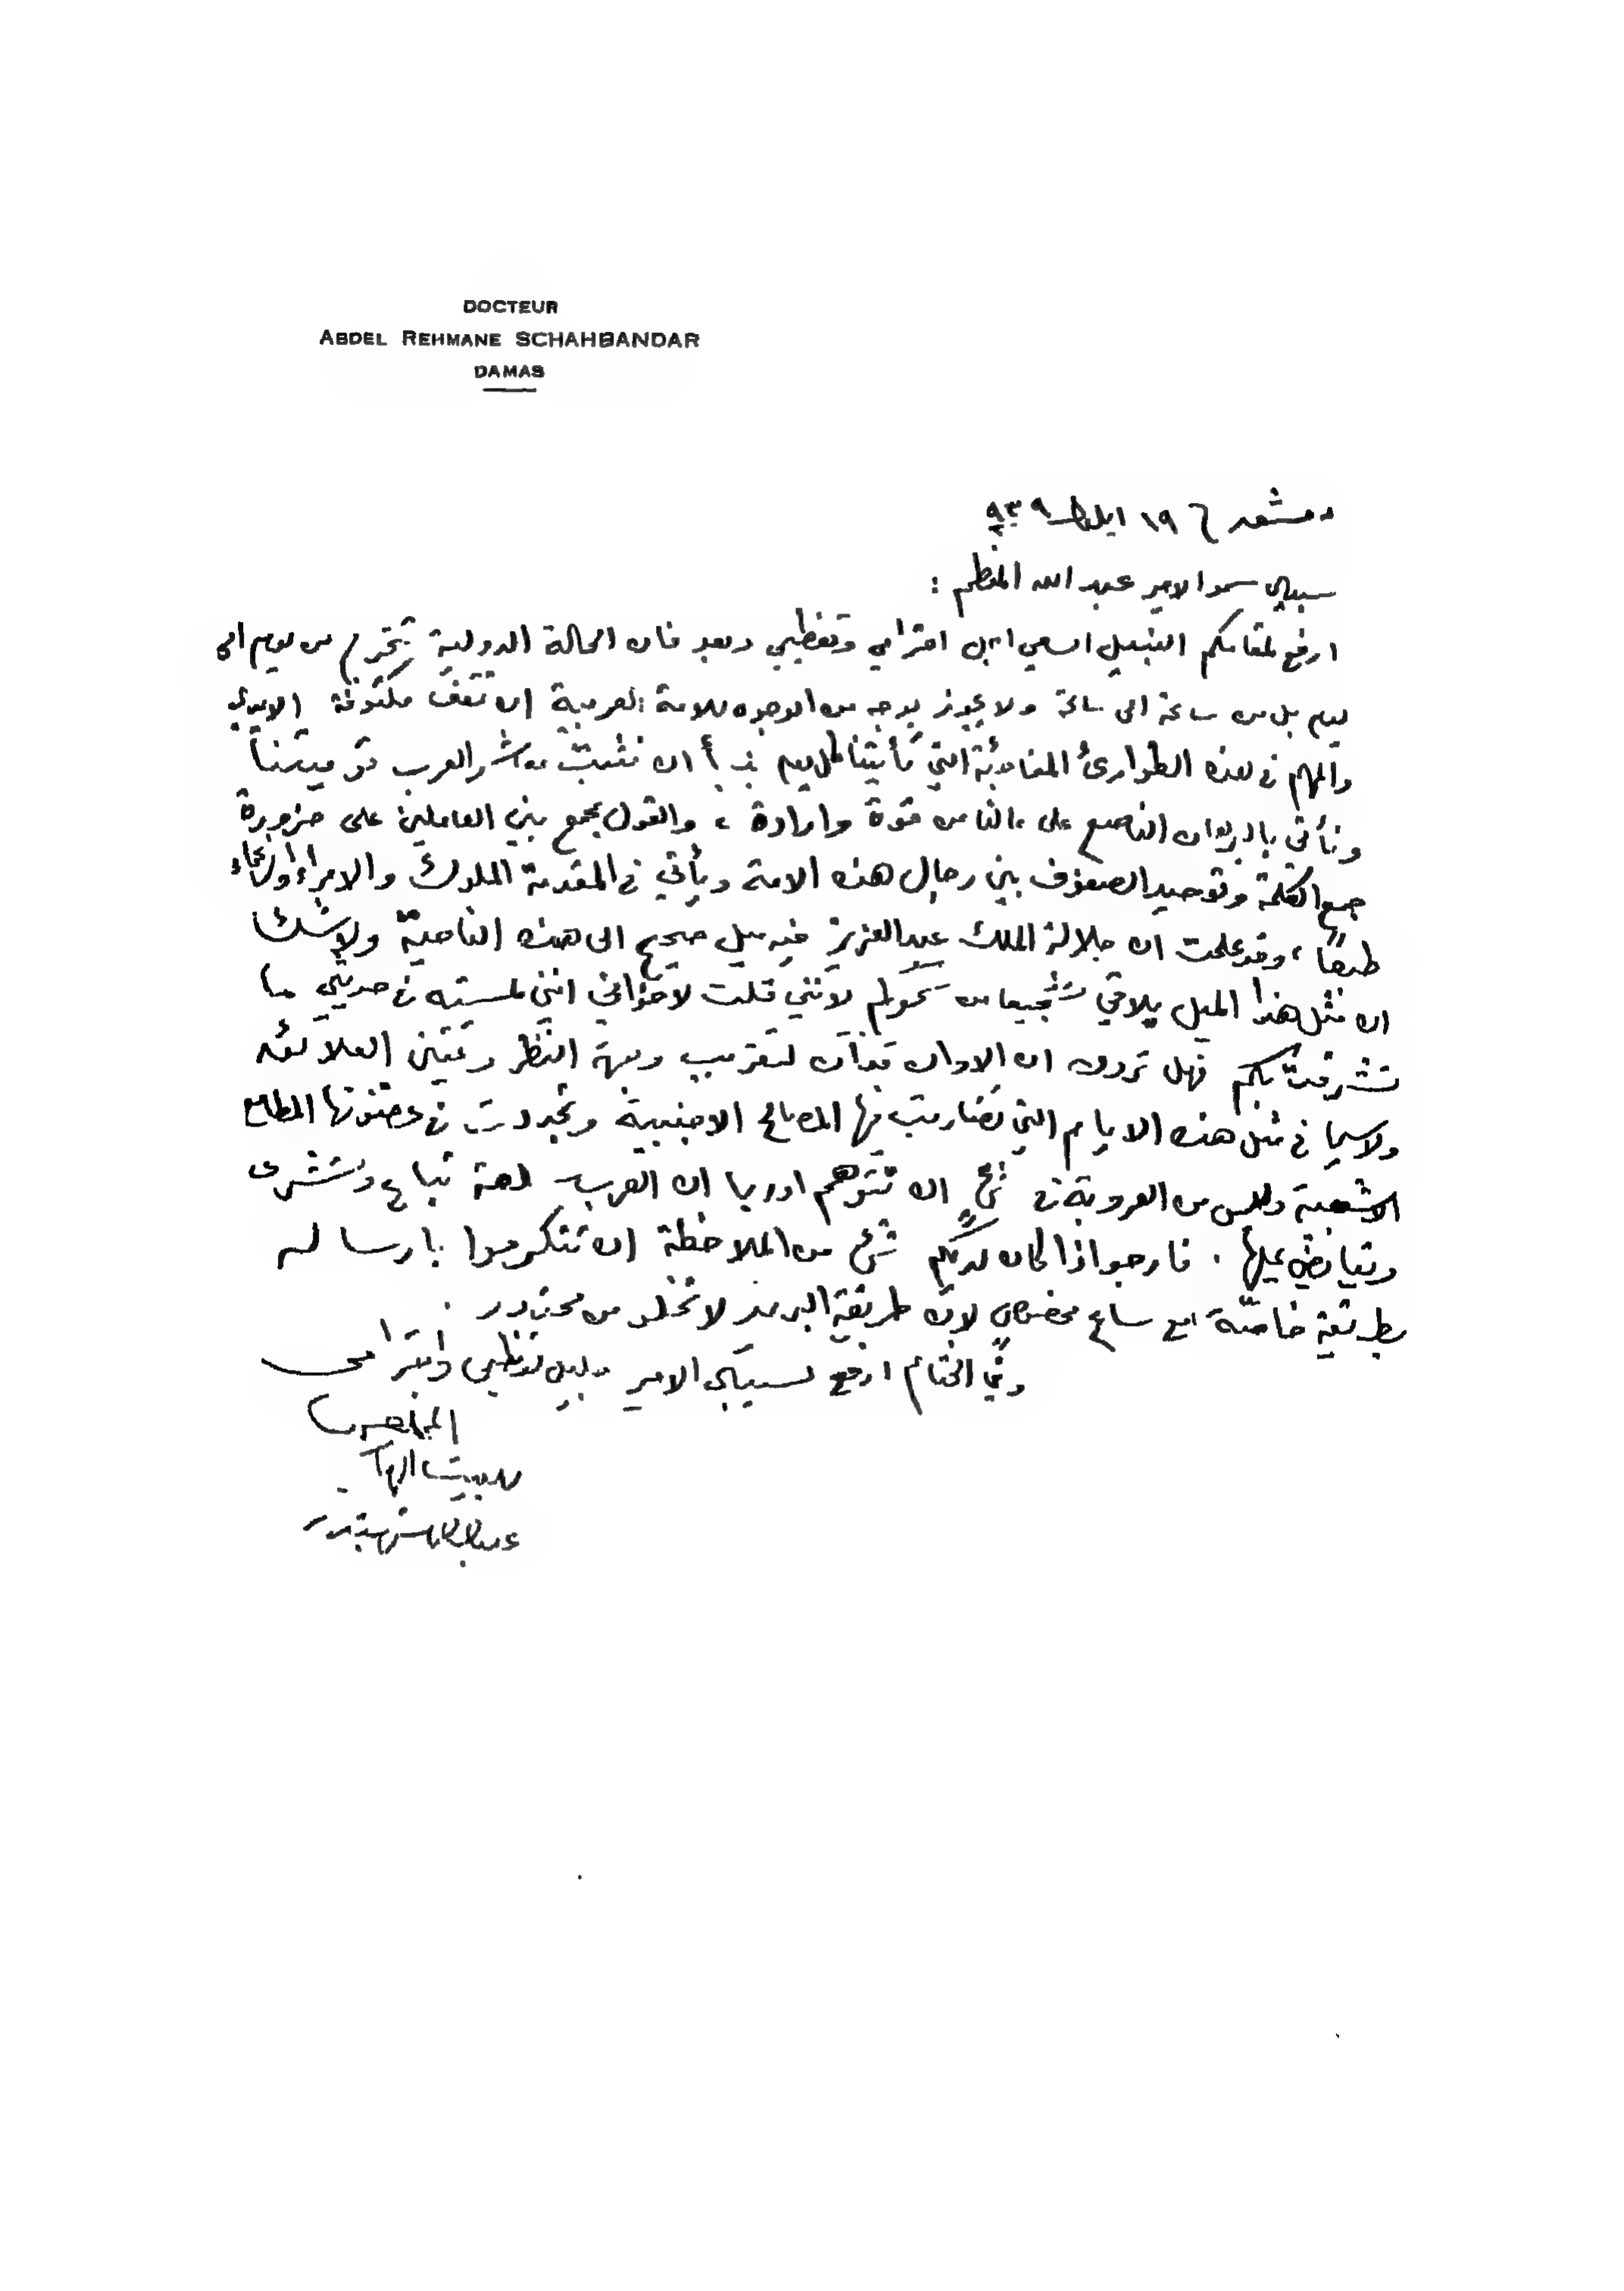 DOCTEUR
ABDEL REHMANE SCHAHBANDAR
DAMAS
دمشق في ١٩ ايلول ٩٣٩
سيدي سمو الامير عبد الله المعظم :
ارفع لمقامكم النبيل السامي اجل احترامي وتعظيمي وبعد فان الحالة الدولية تتحرج من يوم الى
يوم بل من ساعة الى ساعة ولا يجوز بوجه من الوجوه للامة العربية ان تقف مكتوفة الايدي
والمهم في هذه الطوارئ المفاجئة التي تأتينا كل يوم بنبأ ان نثبت معاشر العرب قوميتنا
ونأتي بالبرهان الناصع على مالنا من قوة وارادة ، والقول مجمع بين العاملين على ضرورة
جمع الكلمة وتوحيد الصفوف بين رجال هذه الامة ويأتي في المقدمة الملوك والامراء والزعماء
طبعاً ، وقد علمت ان جلالة الملك عبد العزيز فيه ميل صحيح الى هذه الناحية ولا شك
ان مثل هذا الميل يلاقي تشجيعا من سموكم لانني قلت لاخواني انني لمسته في حديثي لما
تشرفت بكم فهل ترون ان الاوان قد آن لتقريب وجهة النظر وتمتين العلائق
ولاسيما في مثل هذه الايام التي تضاربت فيها المصالح الاجنبية وتجددت في المطامع
الاشعبية وليس من العروبة في شيء ان تتوهم اوربا ان العرب سلعة تباع وتشترى
ويتقايض عليها . فارجو اذا كان لديكم شيء من الملاحظة ان تتكرموا بارساله
بطريقة خاصة مع ساع مخصوص لان طريقة البريد لا تخلو من محاذير .
وفي الختام ارفع لسيدي الامير جليل تعظيمي واحترامي
المخلص
للبيت الهاشمي
عبد الرحمن شهبندر